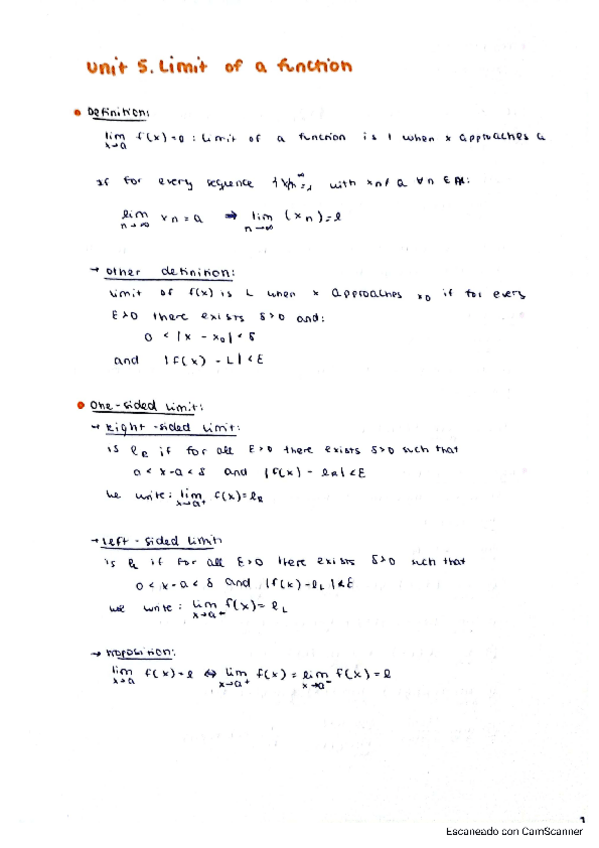 Unit 5. Limit of a function
Definition:
lim x→a f(x)=l : Limit of a function is l when x approaches a
If for every sequence {xn}∞n=1 with xn≠a ∀n∈ℕ:
lim n→∞ xn = a ⇒ lim n→∞ (xn)=l
→ other definition:
Limit of f(x) is L when x approaches x0 if for every
ε>0 there exists δ>0 and:
0 < |x - x0| < δ
and |f(x) - L| < ε
One-sided limit:
→ Right-sided limit:
is lR if for all ε>0 there exists δ>0 such that
0 < x-a < δ and |f(x) - lR| < ε
We write: lim x→a+ f(x)=lR
→ Left-sided limit
is lL if for all ε>0 there exists δ>0 such that
0 < x-a < δ and |f(x)-lL| < ε
we write: lim x→a- f(x)= lL
→ Proposition:
lim x→a f(x)=l ⇔ lim x→a+ f(x) = lim x→a- f(x)=l
1
Escaneado con CamScanner